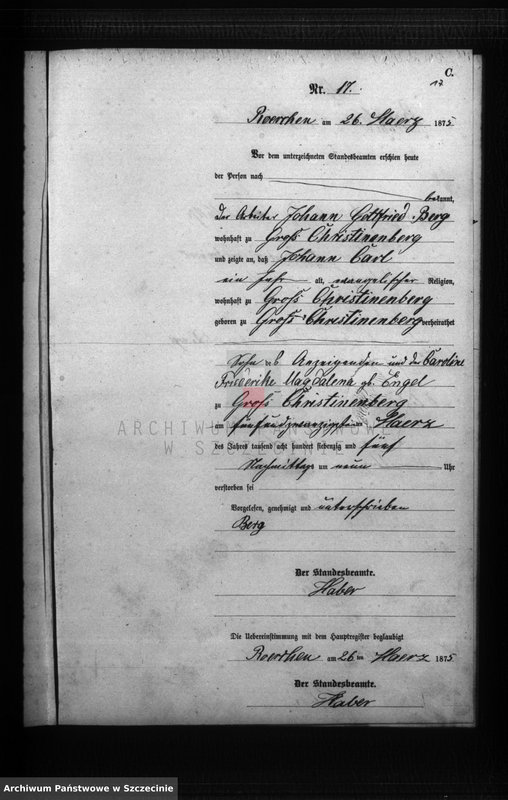 C.
17
Nr. 17.
Roerchen am 26. Maerz 1875
Vor dem unterzeichneten Standesbeamten erschien heute
der Person nach
bekannt,
der Arbeiter Johann Gottfried Berg
wohnhaft zu Groß Christinenberg
und zeigte an, daß Johann Carl
ein Jahr alt, evangelischer Religion,
wohnhaft zu Groß Christinenberg
geboren zu Groß Christinenberg verheirathet
Sohn des Anzeigenden und der Caroline
Friederike Magdalena geb. Engel
zu Groß Christinenberg
am fünfundzwanzigsten Maerz
des Jahres tausend acht hundert siebenzig und fünf
Nachmittags um neun Uhr
verstorben sei
Vorgelesen, genehmigt und unterschrieben
Berg
Der Standesbeamte.
Haber
Die Uebereinstimmung mit dem Hauptregister beglaubigt
Roerchen am 26 ten Maerz 1875
Der Standesbeamte.
Haber
ARCHIWUM PAŃSTWOWE
W SZCZECINIE
Archiwum Państwowe w Szczecinie